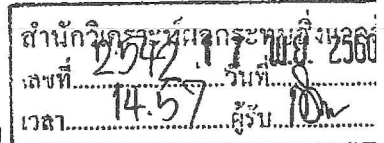 สำนักวิเคราะห์ผลกระทบสิ่งแวดล้
เลขที่ 2542 วันที่ 17 พ.ย. 2560
เวลา 14.57 ผู้รับ